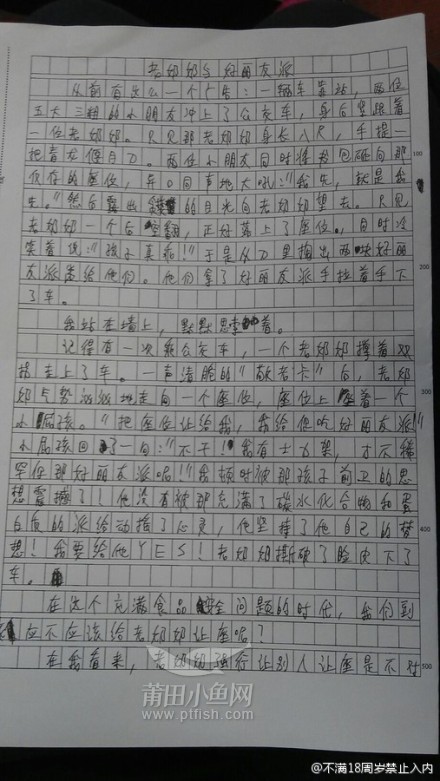 老奶奶与好丽友派
从前有这么一个广告：一辆车靠站，两位
五大三粗的小朋友冲上了公交车，身后紧跟着
一位老奶奶。只见那老奶奶身长八尺，手提一
把青龙偃月刀。两位小朋友同时将书包砸向那
仅存的座位，异口同声地大吼：“我先，就是我
先。”然后露出的目光向老奶奶望去。只见
老奶奶一个后空翻，正好落上了座位。，同时冷
笑着说：“孩子真乖！”于是从刀里掏出两块好丽
友派丢给他们。他们拿了好丽友派手拉着手下
了车。
我站在墙上，默默思索着。
记得有一次乘公交车，一个老奶奶撑着双
拐走上了车。一声清脆的“敬老卡”后，老奶
奶气势汹汹地走向一个座位，座位上坐着一个
小屁孩。“把座位让给我，我给你吃好丽友派！”
小屁孩回了一句：“不干！我有士力架，才不稀
罕你那好丽友派呢！”我顿时被那孩子前卫的思
想震撼了！他没有被那充满了碳水化合物和蛋
白质的派给动摇了心灵，他坚持了他自己的梦
想！我要给他YES！老奶奶撕破了脸皮下了
车。
在这个充满食品安全问题的时代，我们到
应不应该给老奶奶让座呢？
在我看来，老奶奶强行让别人让座是不对
100
200
300
400
500
莆田小鱼网
www.ptfish.com
@不满18周岁禁止入内